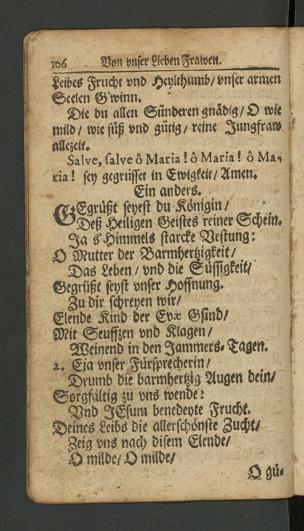 106 Von vnser Lieben Frawen.
Leibes Frucht vnd Heylthumb/ vnser armen
Seelen G'winn.
Die du allen Sünderen gnädig/ O wie
mild/ wie süß vnd gütig/ reine Jungfraw
allezeit.
Salve, salve ô Maria! ô Maria! ô Ma-
ria! sey gegrüsset in Ewigkeit/ Amen.
Ein anders.
GEgrüßt seyest du Königin/
Deß Heiligen Geistes reiner Schein.
Ja s'Himmels starcke Vestung:
O Mutter der Barmhertzigkeit/
Das Leben/ vnd die Süssigkeit/
Gegrüßt seyst vnser Hoffnung.
Zu dir schreyen wir/
Elende Kind der Evæ Gsind/
Mit Seufftzen vnd Klagen/
Weinend in den Jammers-Tagen.
2. Eja vnser Fürsprecherin/
Drumb die barmhertzig Augen dein/
Sorgfältig zu vns wende:
Vnd JEsum benedeyte Frucht.
Deines Leibs die allerschönste Zucht/
Zeig vns nach disem Elende/
O milde/ O milde/
O gü-